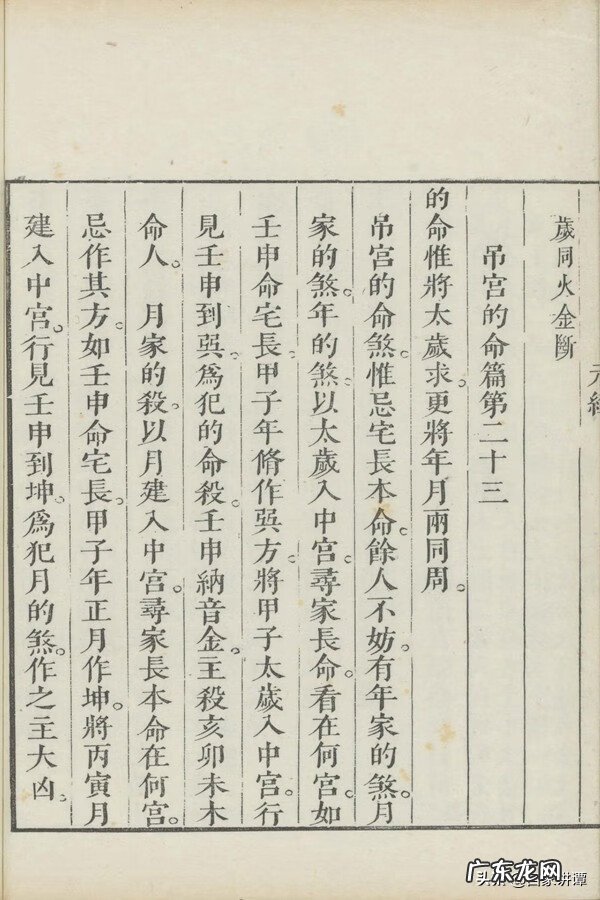 歲同火金斷
吊宮的命篇第二十三
的命惟將太歲求。更將年月兩同周。
吊宮的命煞。惟忌宅長本命。餘人不妨。有年家的煞。月
家的煞。年的煞以太歲入中宮。尋家長命。看在何宮。如
壬申命宅長。甲子年脩作巽方。將甲子太歲入中宮。行
見壬申到巽。爲犯的命殺。壬申納音金。主殺亥卯未木
命人。 月家的殺。以月建入中宮。尋家長本命在何宮。
忌作其方。如壬申命宅長。甲子年正月作坤。將丙寅月
建入中宮。行見壬申到坤。爲犯月的煞。作之主大凶。
广东龙网
讲谭